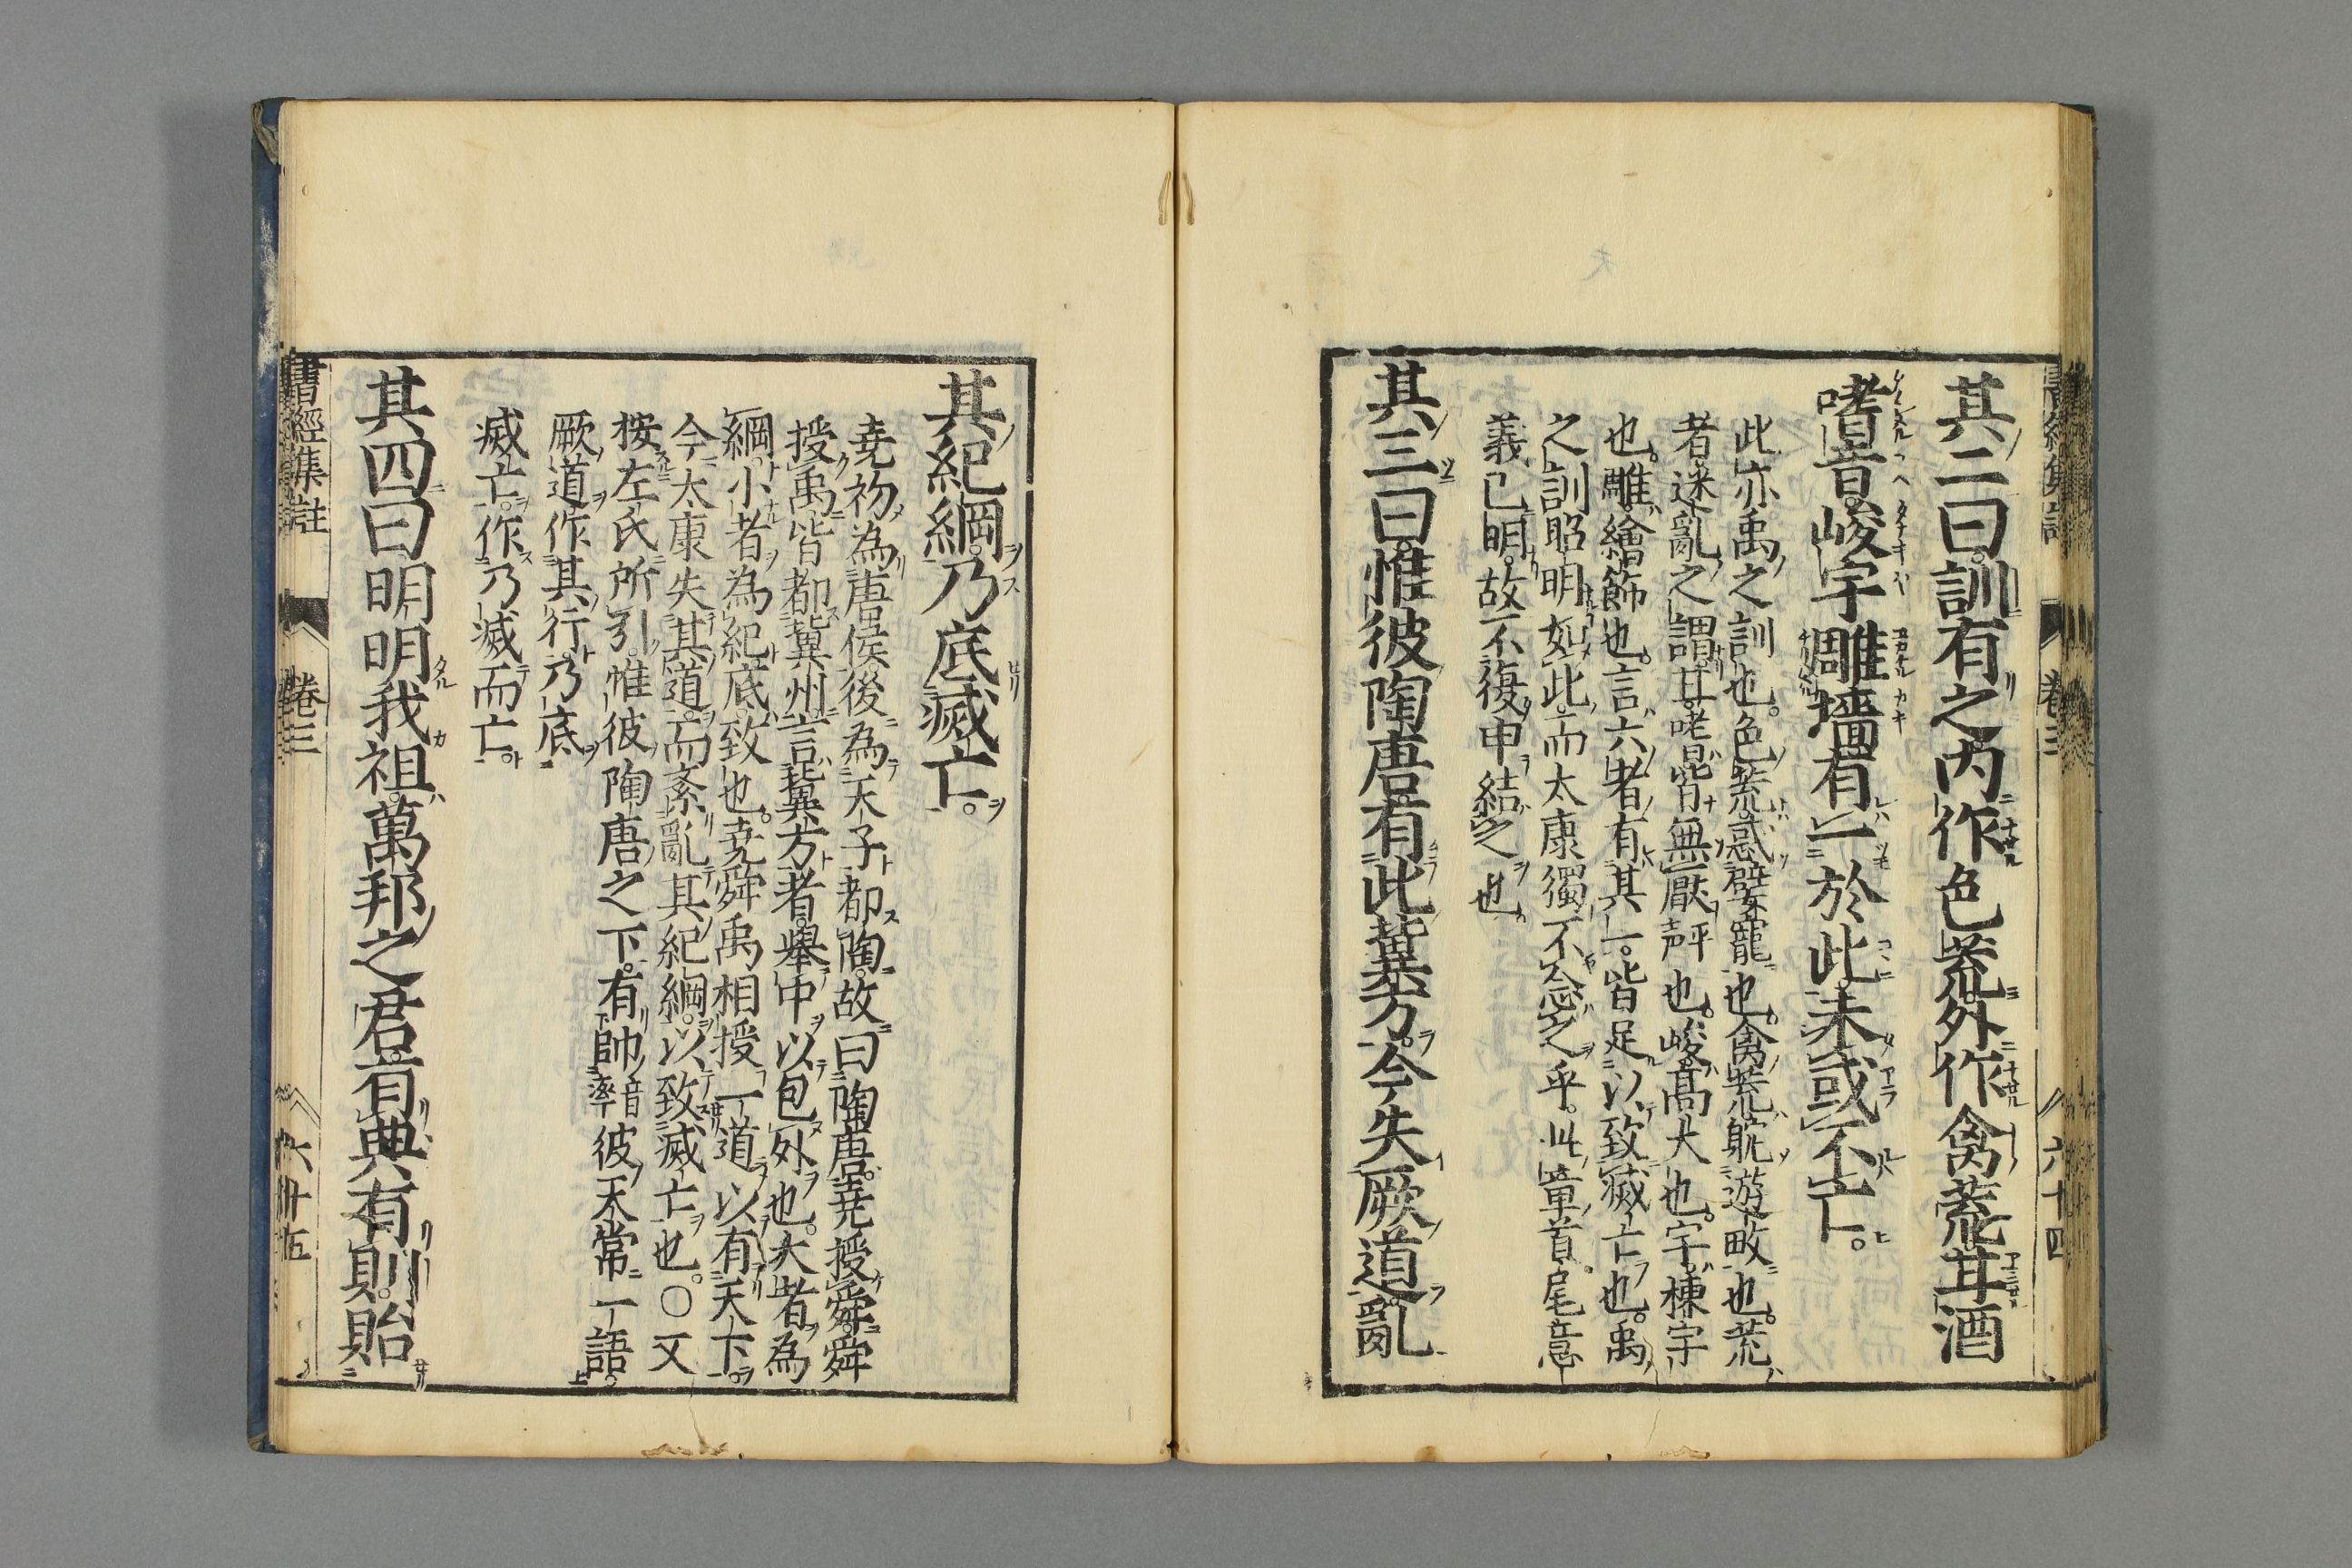 其二曰訓有之內作色荒外作禽荒甘酒
嗜音峻宇雕墻有一於此未或不亡。
此亦禹之訓也。色荒惑嬖寵也。禽荒躭遊畋也。荒
者迷亂之謂甘嗜皆無厭也。峻高大也。宇棟宇
也。雕繪飾也。言六者有其一。皆足以致滅亡也。禹
之訓昭明如此。而太康獨不念之乎。此章首尾意
義已明。故不復申結之也
其三曰惟彼陶唐有此冀方。今失厥道亂
其紀綱。乃底滅亡。
堯初為唐侯後為天子都陶。故曰陶唐。堯授舜。舜
授禹。皆都冀州。言冀方者。舉中以包外也。大者為
綱。小者為紀底。致也。堯舜禹相授一道以有天下。
今太康失其道。而紊亂其紀綱。以致滅亡也。○又
按左氏所引。惟彼陶唐之下。有帥音率彼天常一語。
厥道作其行。乃底
滅亡。作乃滅而亡。
其四曰明明我祖。萬邦之君有典有則。貽
書經集註 卷三 六卅五
書經集註 卷三 六卅四